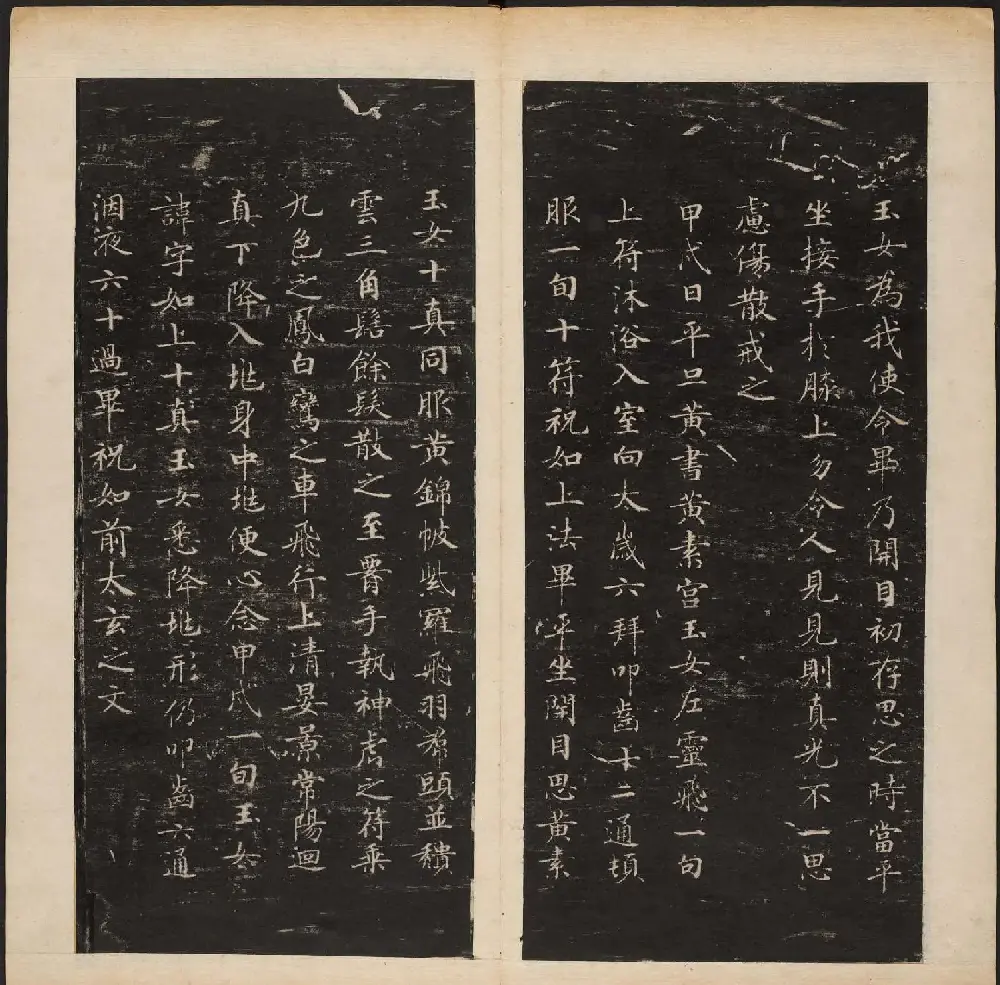 玉女為我使令畢乃開目初存思之時當平
坐接手於膝上勿令人見見則真光不一思
慮傷散戒之
甲戌日平旦黃書黃素宮玉女左靈飛一旬
上符沐浴入室向太歲六拜叩齒十二通頓
服一旬十符祝如上法畢平坐閉目思黃素
玉女十真同服黃錦帔紫羅飛羽帬頭並穨
雲三角髻餘髮散之至腰手執神虎之符乘
九色之鳳白鸞之車飛行上清晏景常陽迴
真下降入𡊟身中𡊟便心念甲戌一旬玉女
諱字如上十真玉女悉降𡊟形仍叩齒六通
咽液六十過畢祝如前太玄之文